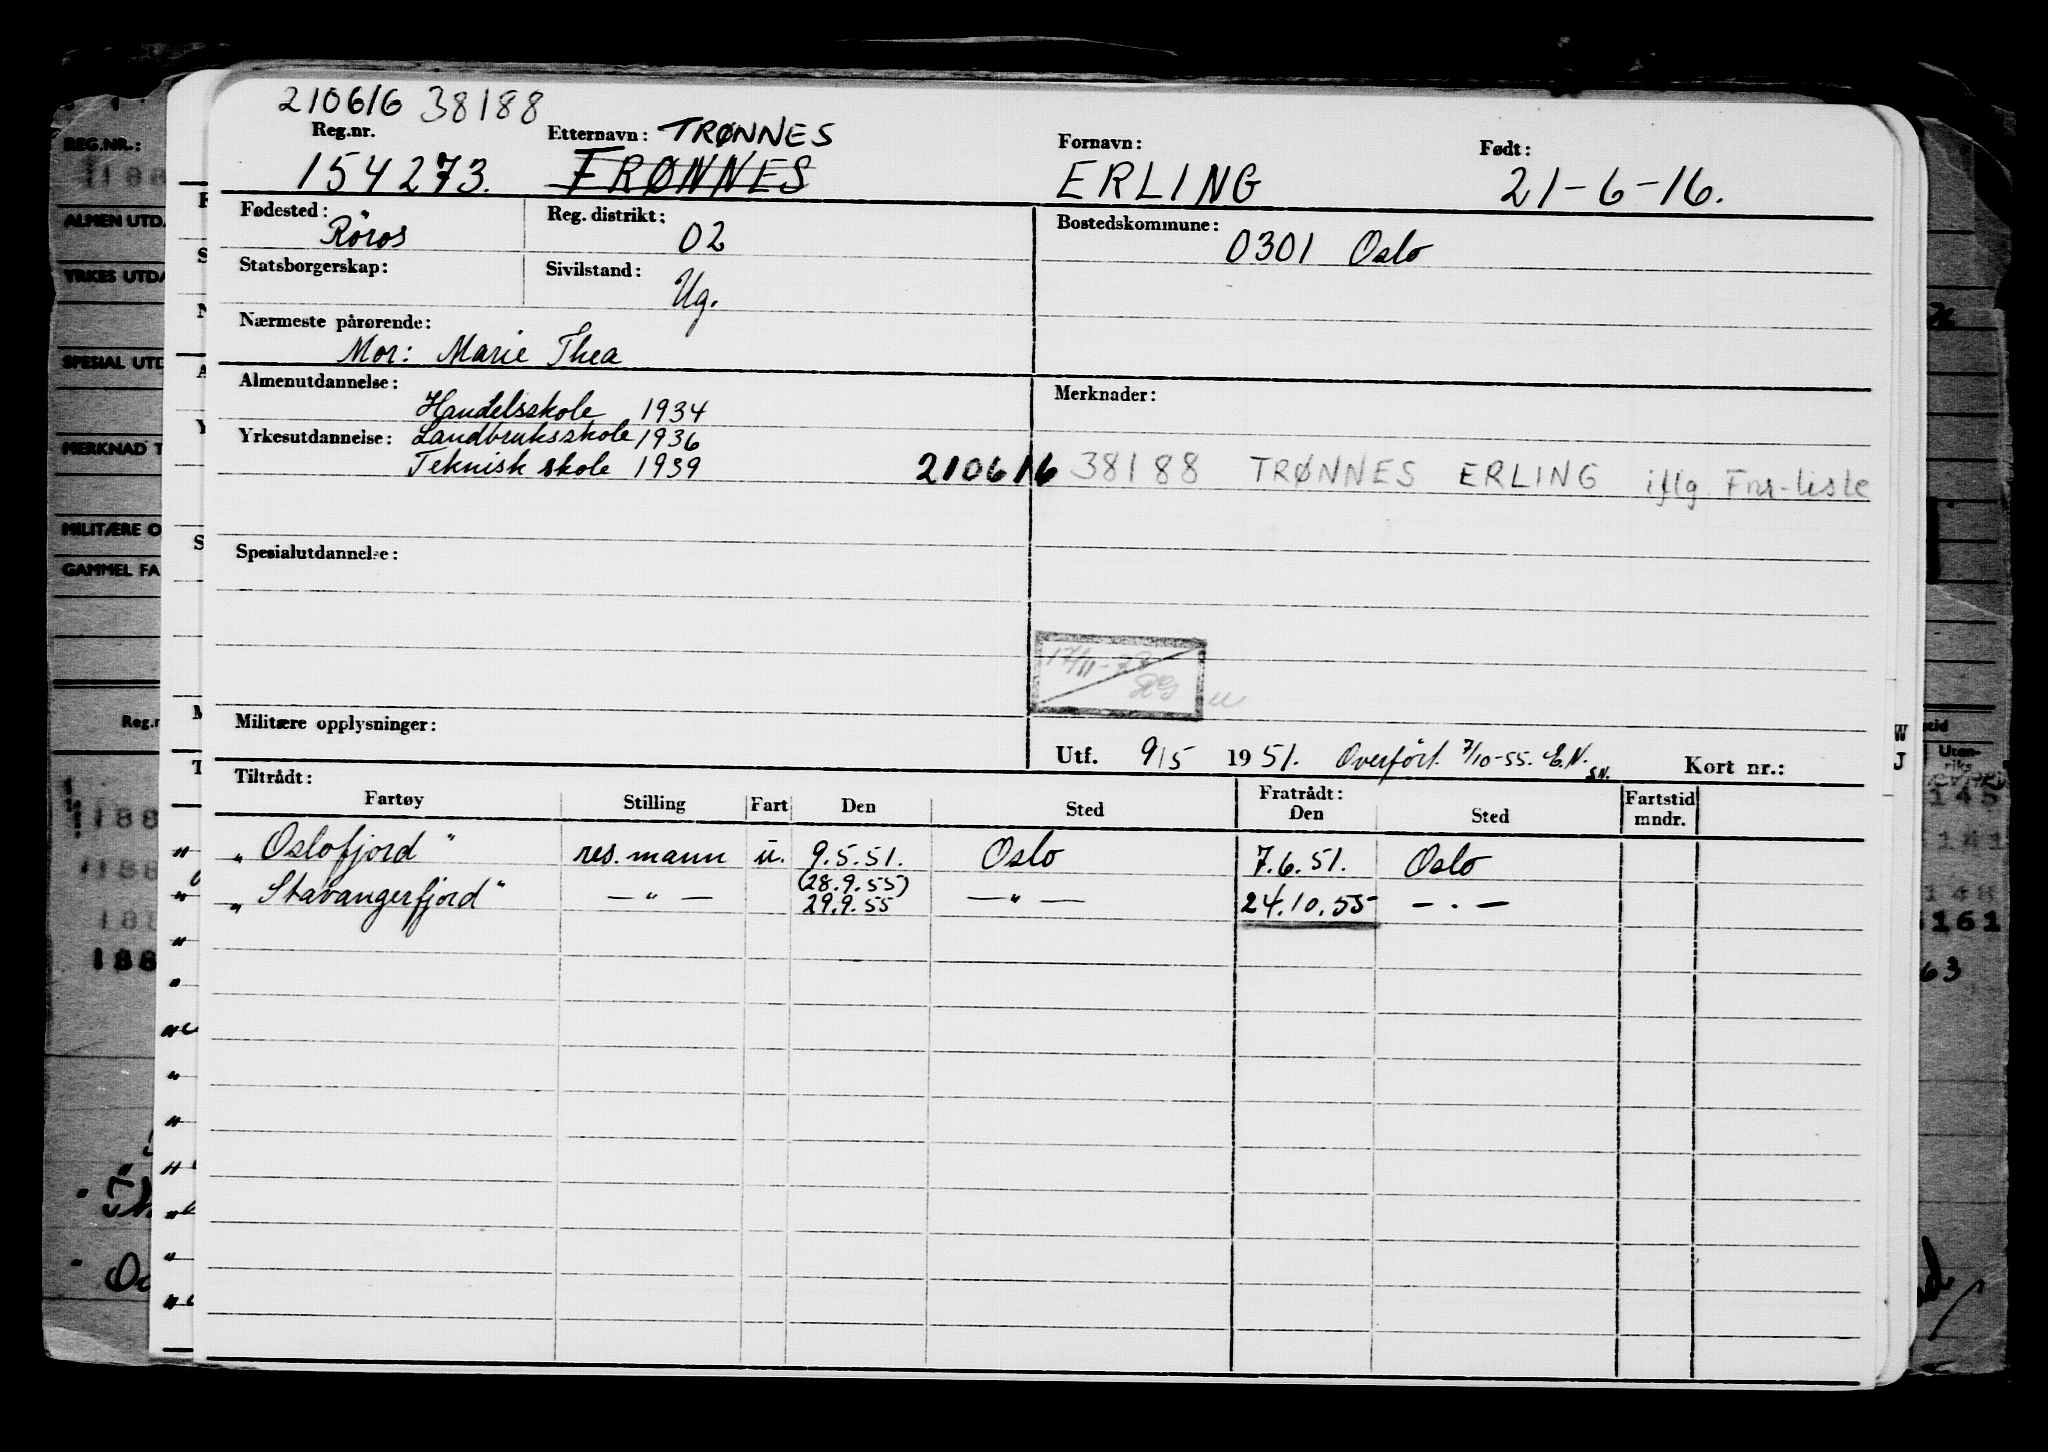 210616 38188
Reg.nr. Etternavn: TRØNNES Fornavn: Født:
154273. FRØNNES ERLING 21-6-16.
Fødested: Röros Reg. distrikt: 02 Bostedskommune: 0301 Oslo
Statsborgerskap: Sivilstand: Ug.
Nærmeste pårørende:
Mor: Marie Thea
Almenutdannelse: Merknader:
Handelsskole 1934
Yrkesutdannelse: Landbruksskole 1936
Teknisk skole 1939
210616 38188 TRØNNES ERLING iflg. Fnr-liste
Spesialutdannelse:
Militære opplysninger:
Utf. 9/5 1951. Overført 7/10-55. E.N. S.N. Kort nr.:
Tiltrådt: Fratrådt:
Fartøy Stilling Fart Den Sted Den Sted Fartstid mndr.
"Oslofjord" res. mann u. 9.5.51. Oslo 7.6.51. Oslo
(28.9.55)
"Stavangerfjord" — " — 29.9.55 — " — 24.10.55 — " —
REG.NR.:
ALMEN UTD.
YRKES UTDA
SPESIAL UTD
MERKNAD T
MILITÆRE O
GAMMEL FA
Reg.n
188
188
188
188
W
J
145
141
148
161
63